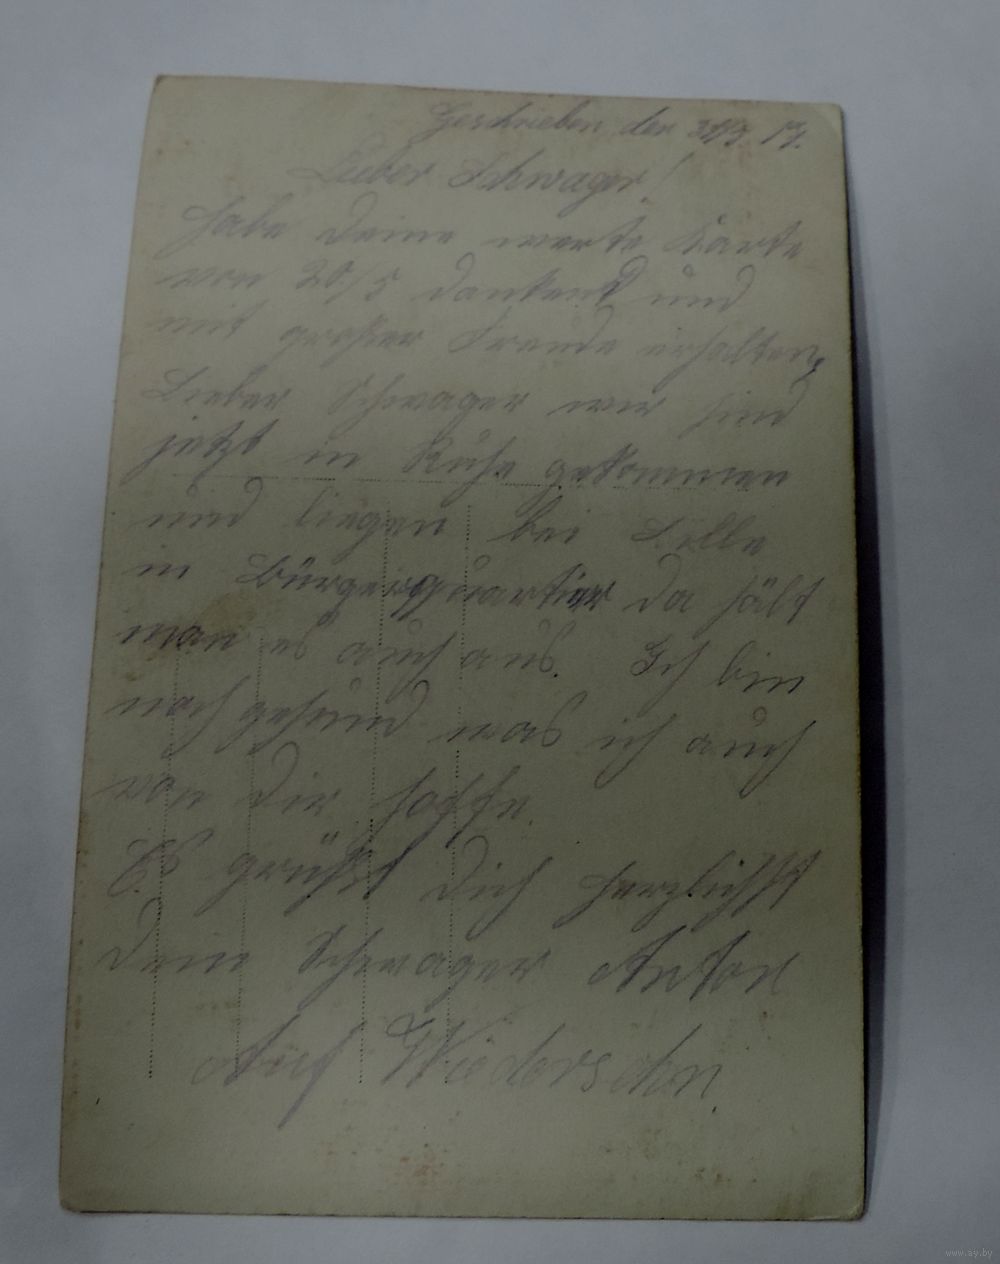 Geschrieben den 31/5 17.
Lieber Schwager!
Habe deine werte Karte
von 20/5 dankend und
mit großer Freude erhalten,
Lieber Schwager wir sind
jetzt in Ruhe gekommen
und liegen bei Lille
in Bürgerquartier da hält
man es auch aus. Ich bin
noch gesund was ich auch
von dir hoffe.
Es grüßt dich herzlichst
dein Schwager Anton
Auf Wiedersehn.
www.ay.by